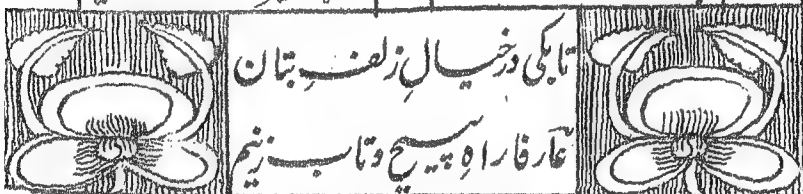 تا بکی در خیالِ زلفِ بتان
عارفا راهِ پیچ و تاب زنیم